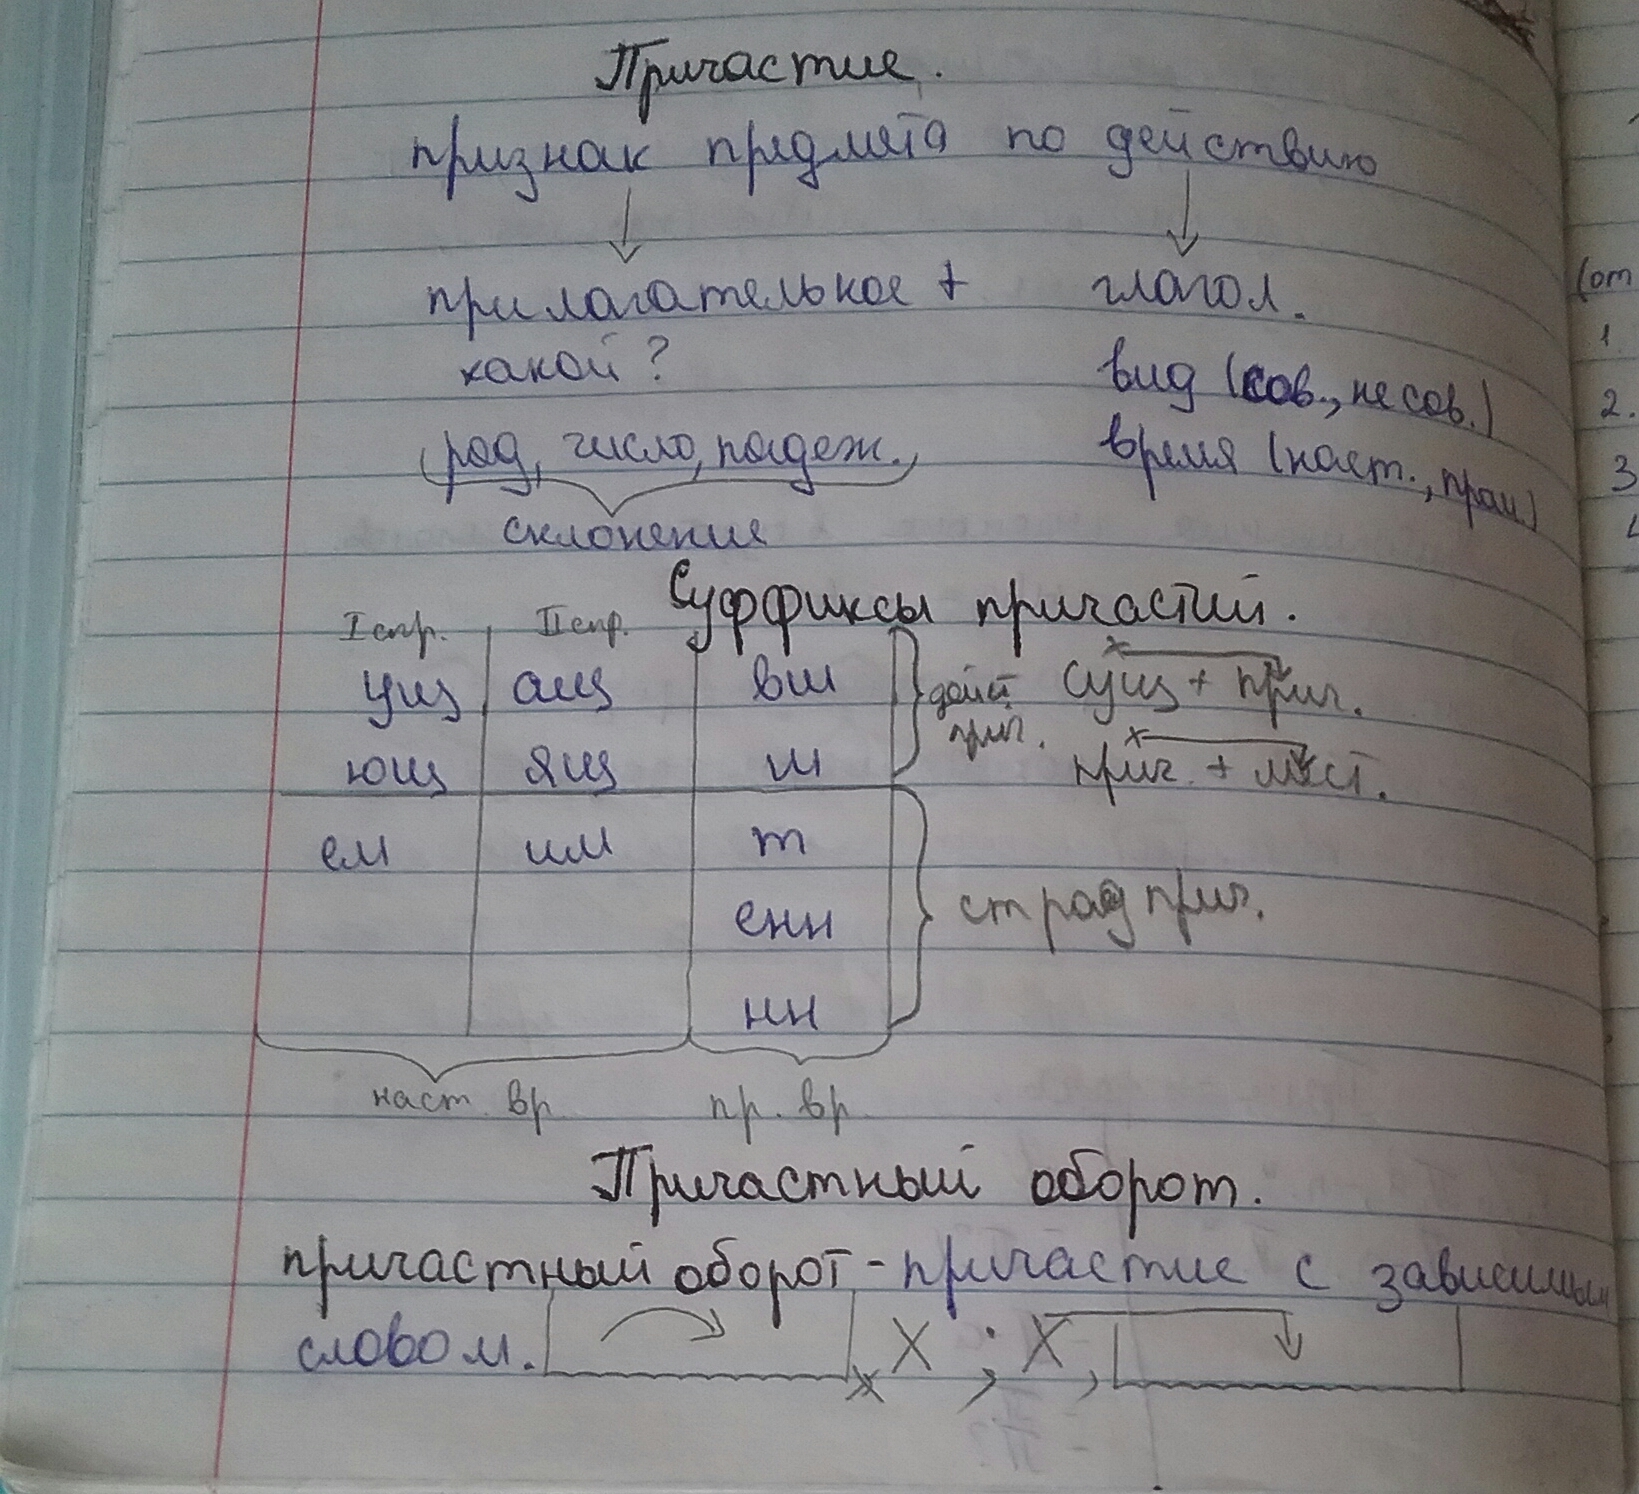 Причастие.
признак предмета по действию
прилагательное + глагол.
какой? вид (сов., несов.)
род, число, падеж. время (наст., прош.)
склонение
Суффиксы причастий.
I спр. II спр.
ущ ащ вш дейст. прич. сущ + прич.
ющ ящ ш прич. + мест.
ем им т
енн страд прич.
нн
наст. вр. пр. вр.
Причастный оборот.
причастный оборот - причастие с зависимым
словом. X ; X ,
(от
1.
2.
3